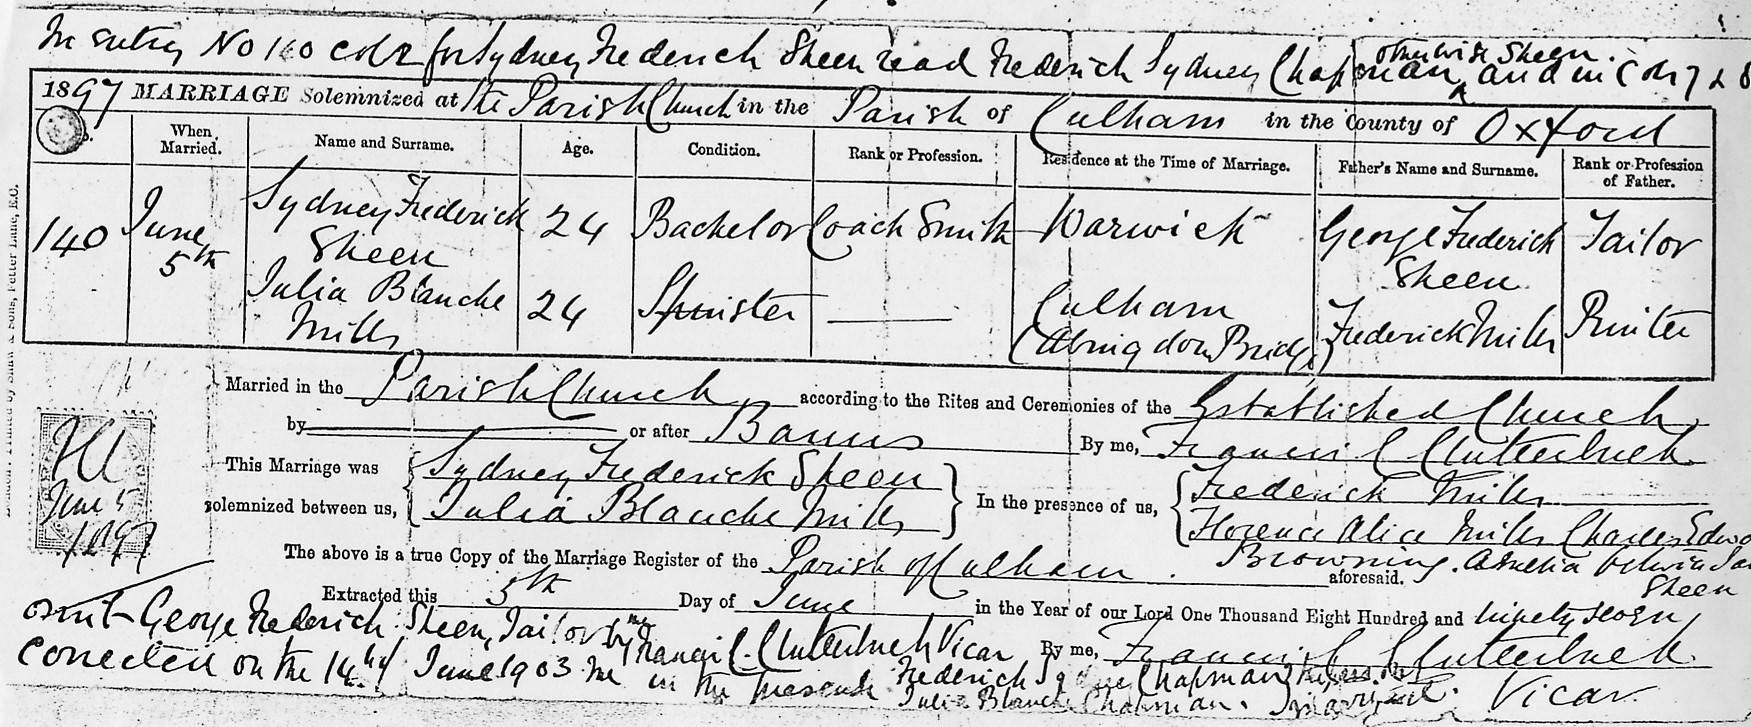 In entry No 140 col 2 for Sydney Frederick Sheen read Frederick Sydney Chapman otherwise Sheen and in Col 7 & 8
1897 MARRIAGE Solemnized at the Parish Church in the Parish of Culham in the County of Oxford
When Married. Name and Surname. Age. Condition. Rank or Profession. Residence at the Time of Marriage. Father's Name and Surname. Rank or Profession of Father.
140 June 5th Sydney Frederick Sheen 24 Bachelor Coach Smith Warwick George Frederick Sheen Tailor
Julia Blanche Mills 24 Spinster Culham (Abingdon Bridge) Frederick Mills Printer
Married in the Parish Church according to the Rites and Ceremonies of the Established Church
by or after Banns By me, Francis C Clutterbuck
This Marriage was solemnized between us, { Sydney Frederick Sheen
Julia Blanche Mills } In the presence of us, { Frederick Mills
Florence Alice Mills Charles
Browning.
Sheen
The above is a true Copy of the Marriage Register of the Parish of Culham aforesaid.
Extracted this 5th Day of June in the Year of our Lord One Thousand Eight Hundred and ninety seven
By me, Francis C Clutterbuck
Vicar.
omit George Frederick Sheen, Tailor by me Francis C. Clutterbuck Vicar
Corrected on the 14th of June 1903 in the presence Frederick Sydney Chapman
Julia Blanche Chapman.
H
June 5
1897